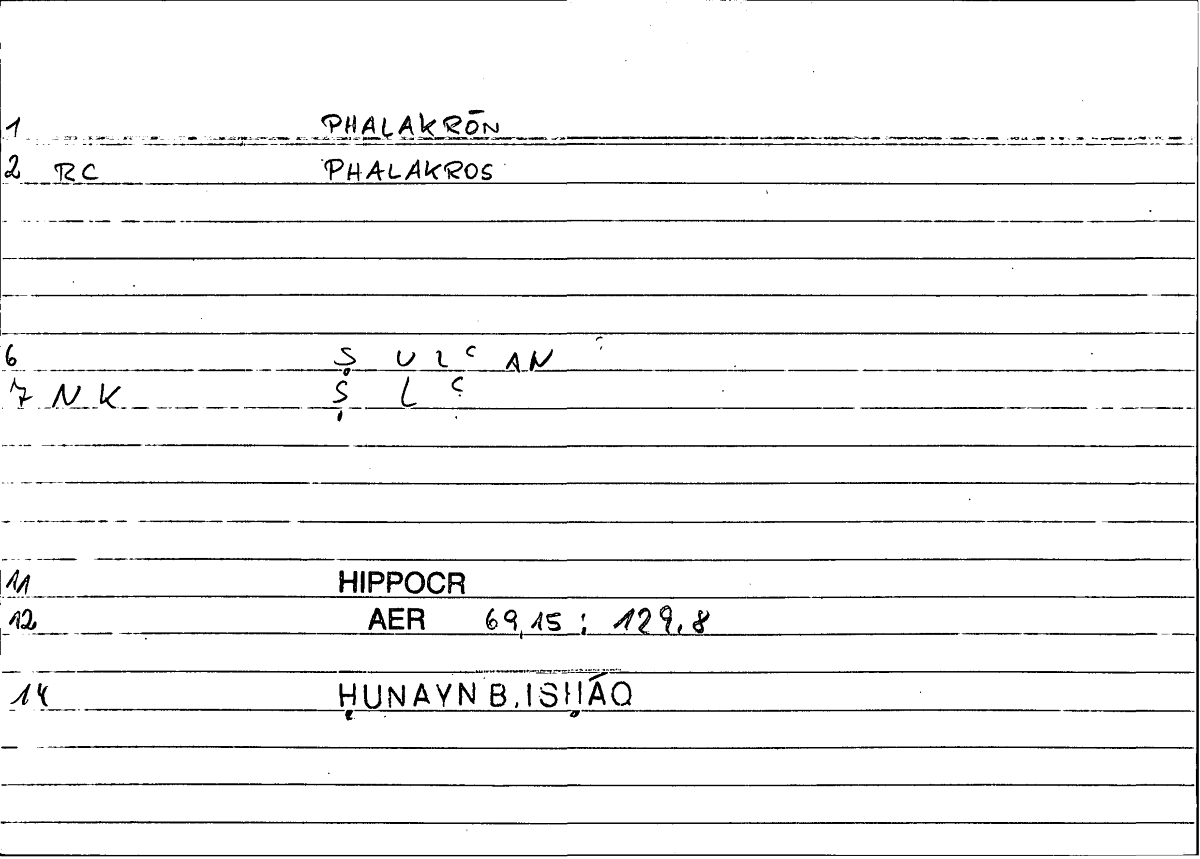 1 PHALAKRŌN
2 RC PHALAKROS
6 Ṣ U L ʿ AN
7 NK Ṣ L ʿ
11 HIPPOCR
12 AER 69,15 ; 129,8
14 ḤUNAYN B. ISḤĀQ